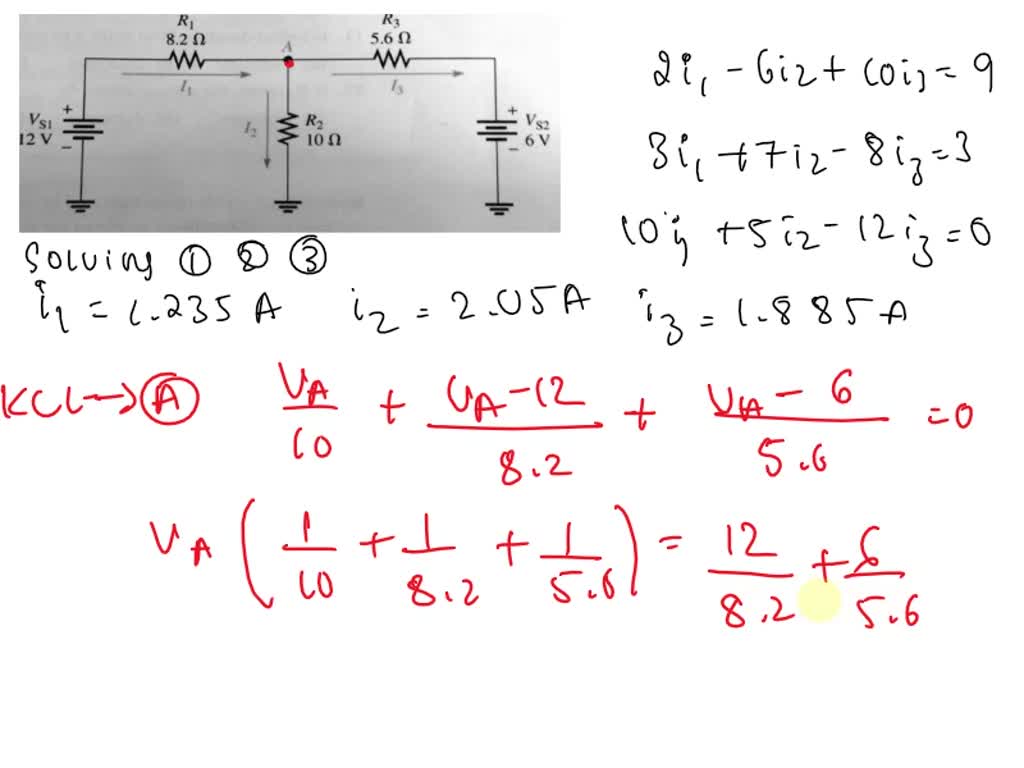 R₁ R₃
8.2 Ω A 5.6 Ω
I₁ I₃
V_S1 + I₂ R₂ + V_S2
12 V − 10 Ω − 6 V
2i₁ - 6i₂ + 10i₃ = 9
3i₁ + 7i₂ - 8i₃ = 3
10i₁ + 5i₂ - 12i₃ = 0
Solving ① ② ③
i₁ = 1.235 A i₂ = 2.05 A i₃ = 1.885 A
KCL → Ⓐ V_A/10 + (V_A - 12)/8.2 + (V_A - 6)/5.6 = 0
V_A (1/10 + 1/8.2 + 1/5.6) = 12/8.2 + 6/5.6